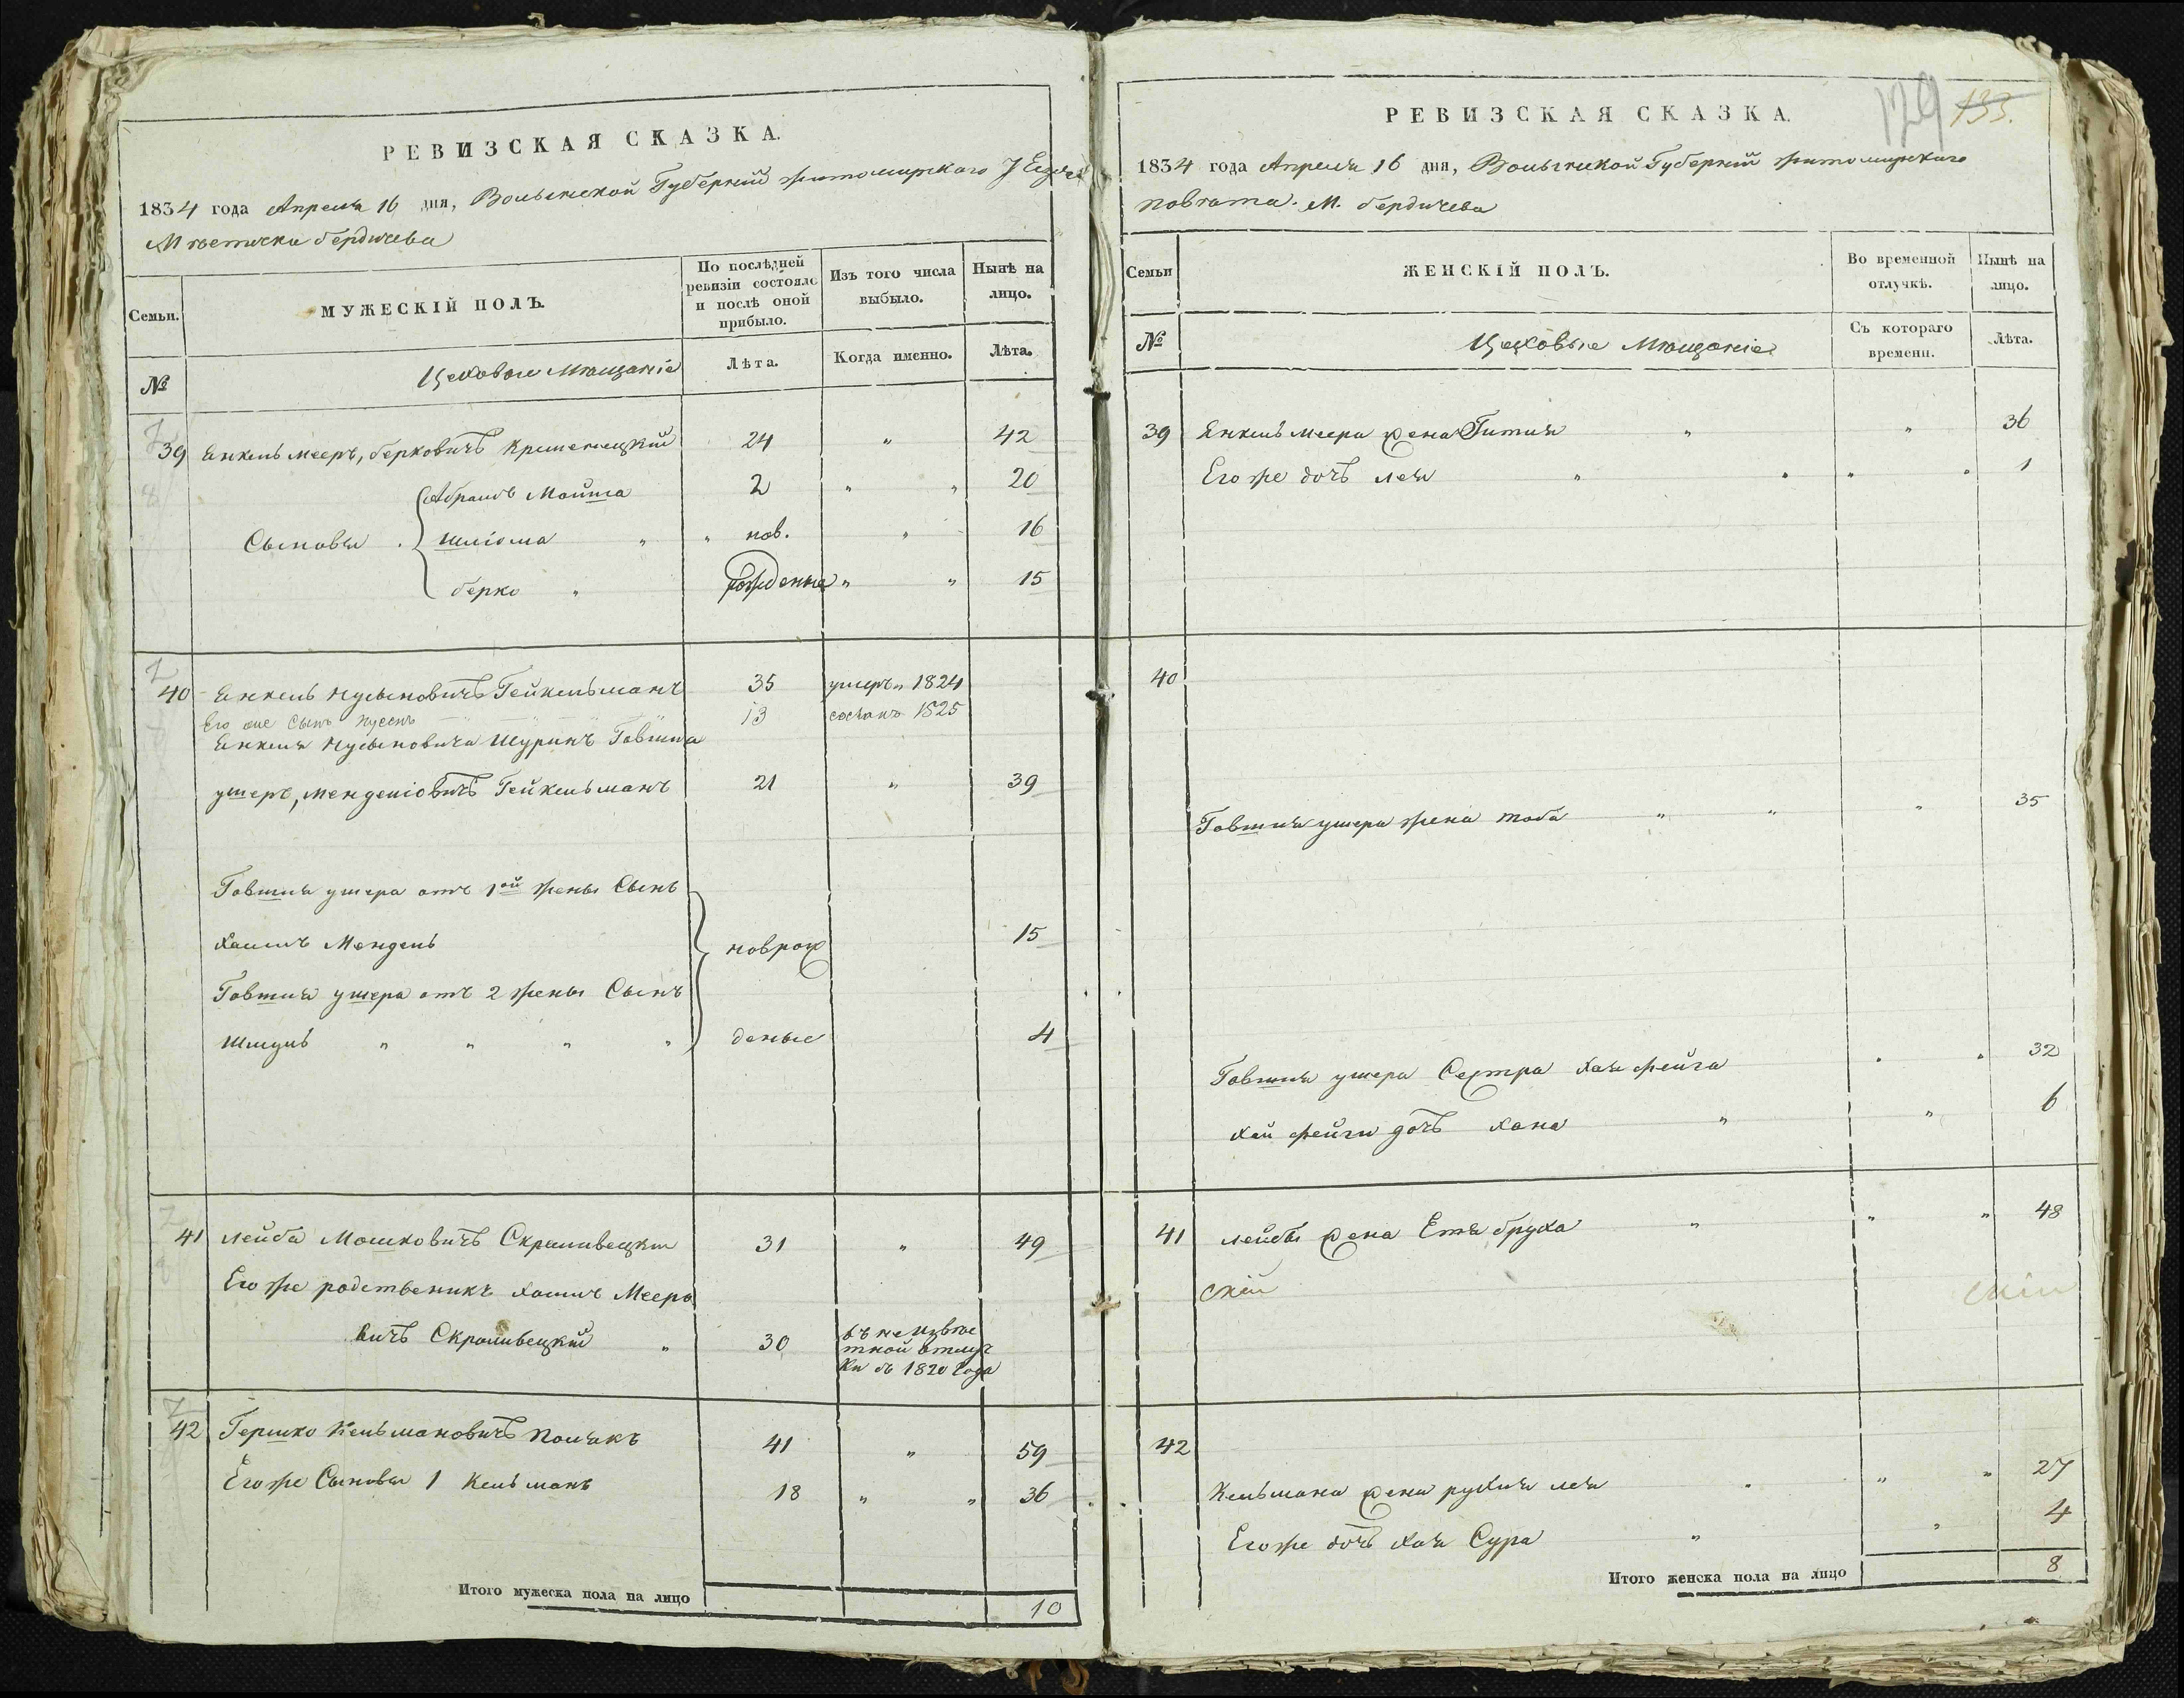 РЕВИЗСКАЯ СКАЗКА.
1834 года Апреля 16 дня, Волынской Губерніи Житомирского
Мѣстичка Бердичева
Семьи.
МУЖЕСКІЙ ПОЛЪ.
По послѣдней ревизіи состояло и послѣ оной прибыло.
Изъ того числа выбыло.
Нынѣ на лицо.
№
Цеховые Мѣщаніе
Лѣта.
Когда именно.
Лѣта.
39 Янкель Мееръ, Берковичъ Кременецкій 24 " 42
Абрамъ Мойша 2 " " 20
Сыновья . Шліома " " нов. " 16
Берко " рожденые " " 15
40 Янкель Нусыновичъ Гейкельманъ 35 умеръ " 1824
Его же Сынъ Нусенъ 13 1825
Янкеля Нусыновича Шуринъ Говшия
ушеръ, Менделіовичъ Гейкельманъ 21 " 39
Говшия ушера отъ 1ой жены Сынъ
Хаимъ Мендель новрож 15
Говшия ушера отъ 2 жены Сынъ
Шмуль " " " " деные 4
41 Лейба Мошковичъ Скраливецкій 31 " 49
Его же родственикъ Хаимъ Мееро
вичъ Скраливецкій " 30 въ неизвѣс
тной отлуч
ки съ 1820 года
42 Гершко Кельмановичъ Полякъ 41 " 59
Его же Сыновья 1 Кельманъ 18 " " 36
Итого мужеска пола на лицо 10
129 133.
РЕВИЗСКАЯ СКАЗКА.
1834 года Апреля 16 дня, Волынской Губерніи Житомирского
повѣта. М. Бердичева
Семьи
ЖЕНСКІЙ ПОЛЪ.
Во временной отлучкѣ.
Нынѣ на лицо.
№
Цеховые Мѣщаніе
Съ котораго времени.
Лѣта.
39 Янкель Меера жена Гитля " " 36
Его же дочъ Лея " " " " 1
40
Говшия ушера жена Тоба " " " 35
Говшия ушера Сестра Хая Фейга " " 32
Хаи Фейги дочъ Хана " " 6
41 Лейбы жена Етя Бруха " " " 48
скій скій
42
Кельмана жена Рухля Лея " " " 27
Его же дочъ Хая Сура " " 4
Итого женска пола на лицо 8